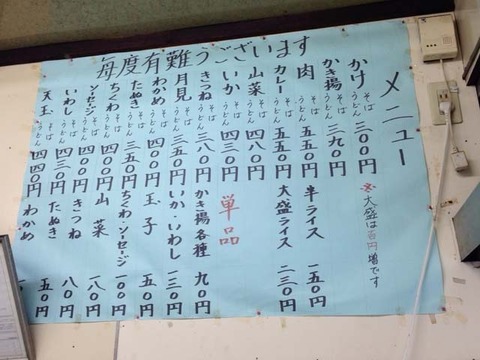 毎度有難うございます
メニュー
かけ そば うどん 三〇〇円
※大盛は百円増です
かき揚 そば うどん 三九〇円
肉 そば うどん 五五〇円
半ライス 一五〇円
カレー そば うどん 五五〇円
大盛ライス 二三〇円
山菜 そば うどん 四八〇円
いか そば うどん 四三〇円
単品
きつね そば うどん 三八〇円
かき揚各種 九〇円
月見 そば うどん 三五〇円
いか・いわし 一三〇円
わかめ そば うどん 四〇〇円
玉子 五〇円
たぬき そば うどん 三五〇円
ちくわ・ソーセージ 一〇〇円
ちくわ そば うどん 四〇〇円
山菜 一八〇円
ソーセージ そば うどん 四〇〇円
きつね 八〇円
いわし そば うどん 四三〇円
たぬき 五〇円
天玉 そば うどん 四四〇円
わかめ